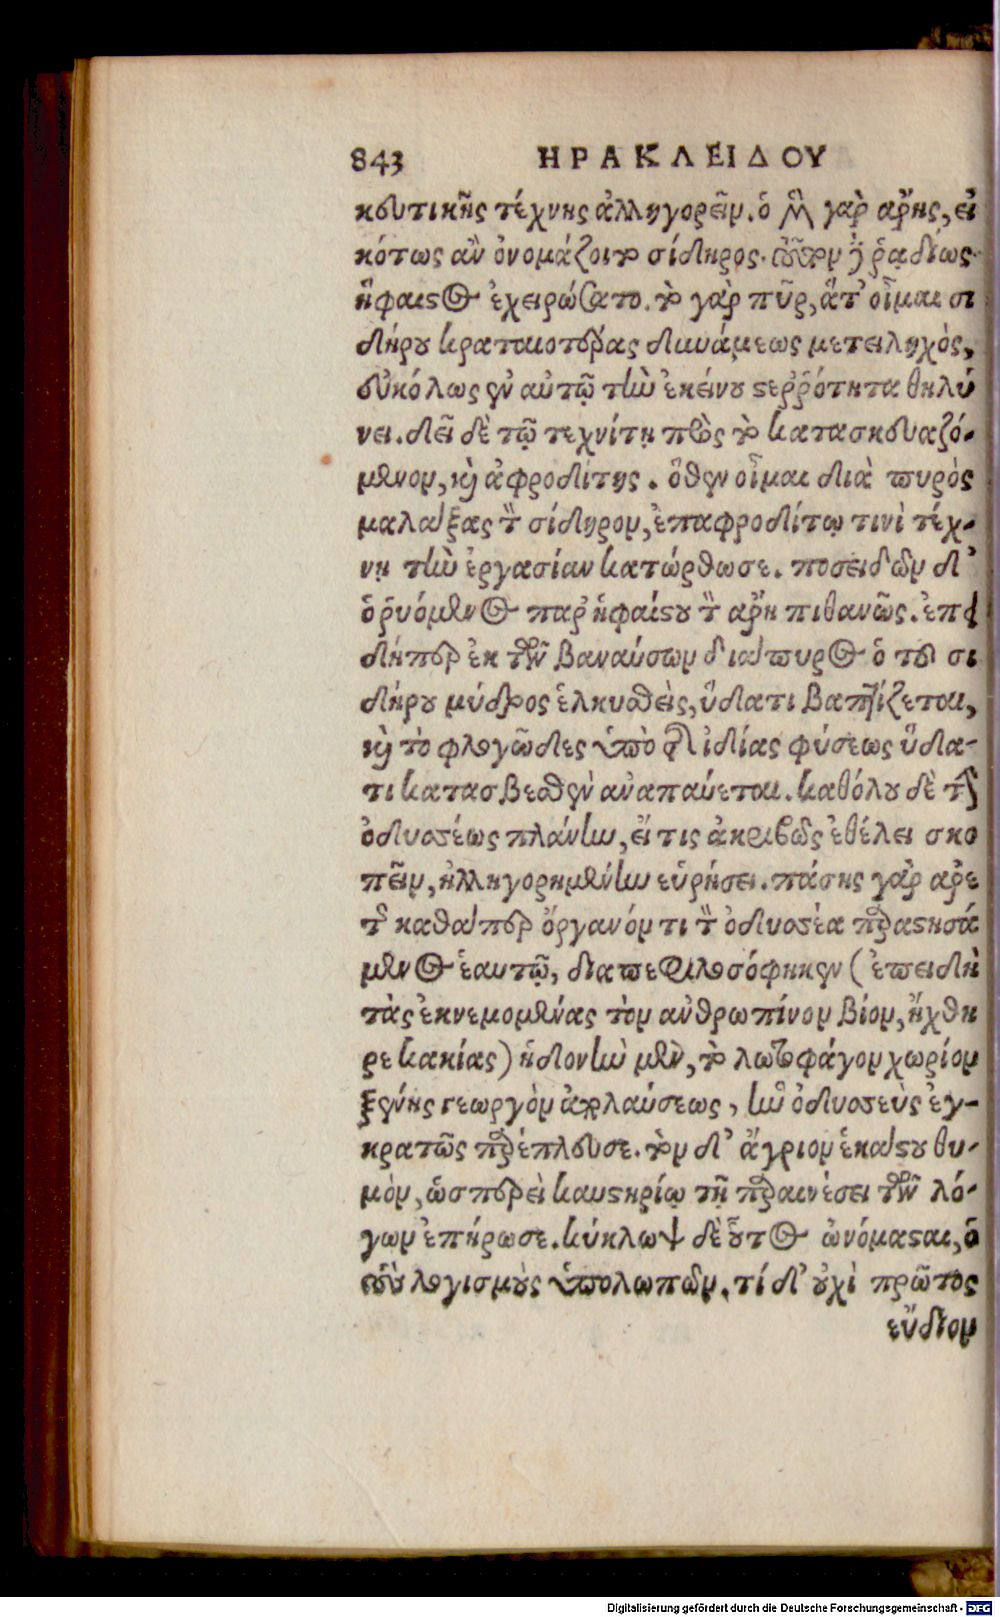 843 ΗΡΑΚΛΕΙΔΟΥ
κευτικῆς τέχνης ἀλληγορεῖν. ὁ μὲν γὰρ ἄρης, εἰ
κότως ἂν ὀνομάζοιτο σίδηρος. τοῦτον δὲ ῥᾳδίως
ἥφαιστος ἐχειρώσατο. τὸ γὰρ πῦρ, ἅτ' οἶμαι σι
δήρου κραταιοτέρας δυνάμεως μετειληχὸς,
εὐκόλως ἐν αὐτῷ τὴν ἐκείνου στερρότητα θηλύ
νει. δεῖ δὲ τῷ τεχνίτῃ πρὸς τὸ κατασκευαζό-
μενον, καὶ ἀφροδίτης. ὅθεν οἶμαι διὰ πυρὸς
μαλάξας τὸν σίδηρον, ἐπαφροδίτῳ τινὶ τέχ-
νῃ τὴν ἐργασίαν κατώρθωσε. ποσειδῶν δ'
ὁ ῥυόμενος παρ' ἡφαίστου τὸν ἄρη πιθανῶς. ἐπει
δήπερ ἐκ τῶν βαναύσων διάπυρος ὁ τοῦ σι
δήρου μύδρος ἑλκυσθεὶς, ὕδατι βαπτίζεται,
καὶ τὸ φλογῶδες ὑπὸ τῆς ἰδίας φύσεως ὕδα-
τι κατασβεσθὲν ἀναπαύεται. καθόλου δὲ τὴν
ὀδυσσέως πλάνην, εἴ τις ἀκριβῶς ἐθέλει σκο
πεῖν, ἠλληγορημένην εὑρήσει. πάσης γὰρ ἀρε
τῆς καθάπερ ὄργανόν τι τὸν ὀδυσσέα παραστησά
μενος ἑαυτῷ, διαπεφιλοσόφηκεν (ἐπειδὴ
τὰς ἐκνεμομένας τὸν ἀνθρωπίνον βίον, ἤχθη
ρε κακίας) ἡδονὴν μὲν, τὸ λωτοφάγον χωρίον
ξένης γεωργὸν ἀπολαύσεως, ἣν ὀδυσσεὺς ἐγ-
κρατῶς παρέπλευσε. τὸν δ' ἄγριον ἑκάστου θυ-
μὸν, ὡσπερεὶ καυστηρίῳ τῇ παραινέσει τῶν λό-
γων ἐπήρωσε. κύκλωψ δὲ οὗτος ὠνόμασται, ὁ
τοὺς λογισμοὺς ὑπολωπῶν. τί δ' οὐχὶ πρῶτος
εὔδιον
Digitalisierung gefördert durch die Deutsche Forschungsgemeinschaft - DFG